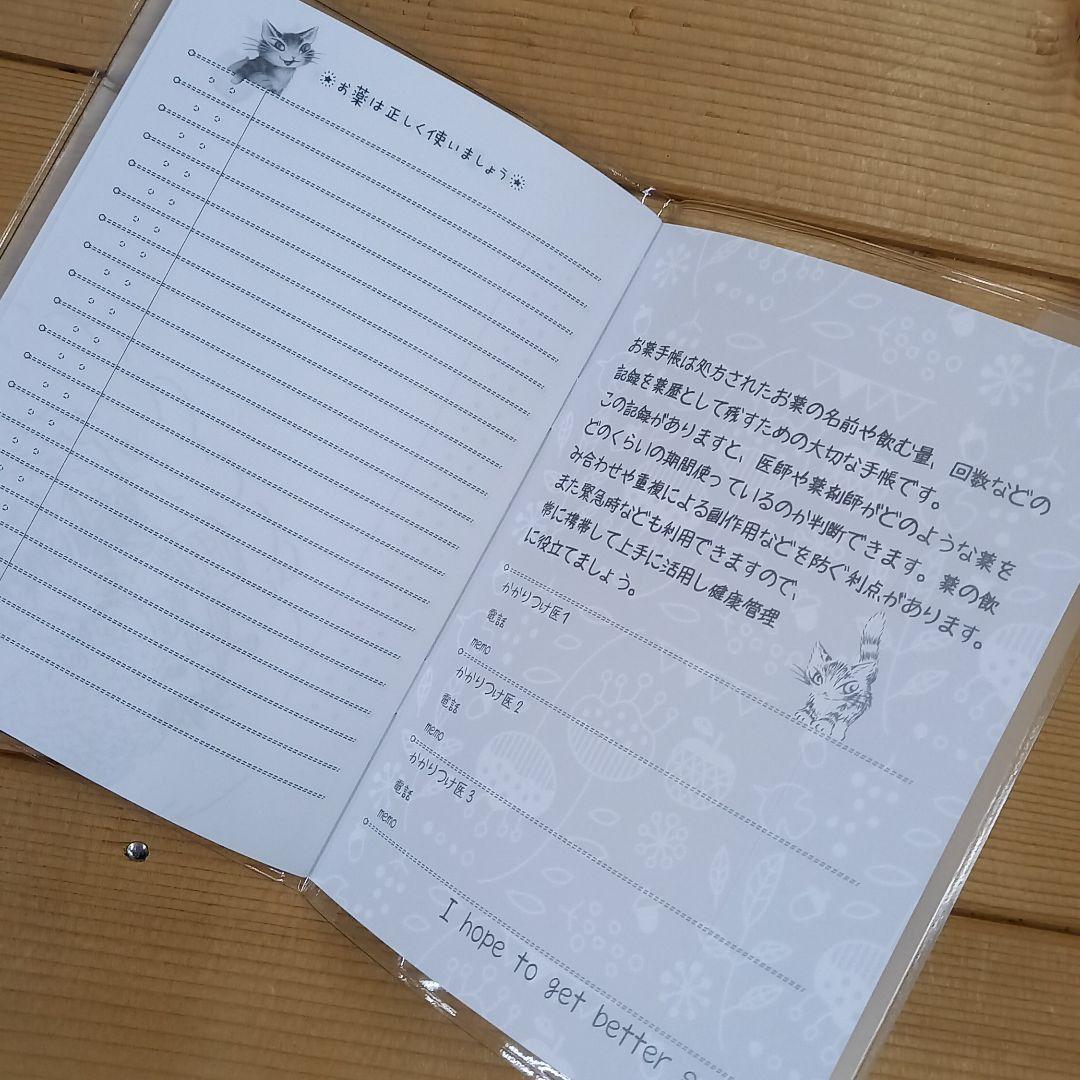 お薬は正しく使いましょう
お薬手帳は処方されたお薬の名前や飲む量、回数などの
記録を薬歴として残すための大切な手帳です。
この記録がありますと、医師や薬剤師がどのような薬を
どのくらいの期間使っているのか判断できます。薬の飲
み合わせや重複による副作用などを防ぐ利点があります。
また緊急時なども利用できますので、
常に携帯して上手に活用し健康管理
に役立てましょう。
かかりつけ医1
電話
memo
かかりつけ医2
電話
memo
かかりつけ医3
電話
memo
I hope to get better